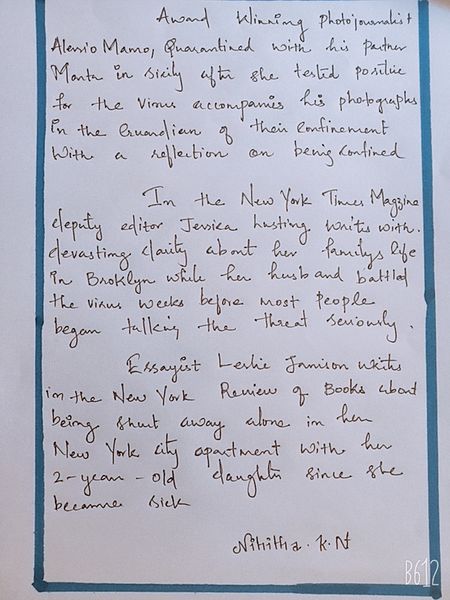 Award Winning photojournalist
Alessio Mamo, Quarantined with his partner
Marta in sicily after she tested positive
for the virus accompanies his photographs
in the Guardian of their confinement
With a reflection on being confined
In the New York Times Magzine
deputy editor Jessica lusting writes with
devasting clarity about her familys life
in Broklyn while her husband battled
the virus weeks before most people
began talking the threat seriously.
Essayist Leslie Jamison writes
in the New York Review of Books about
being shut away alone in her
New York city apartment with her
2-year-old daughter since she
became sick
Nihitha. K.N
B612